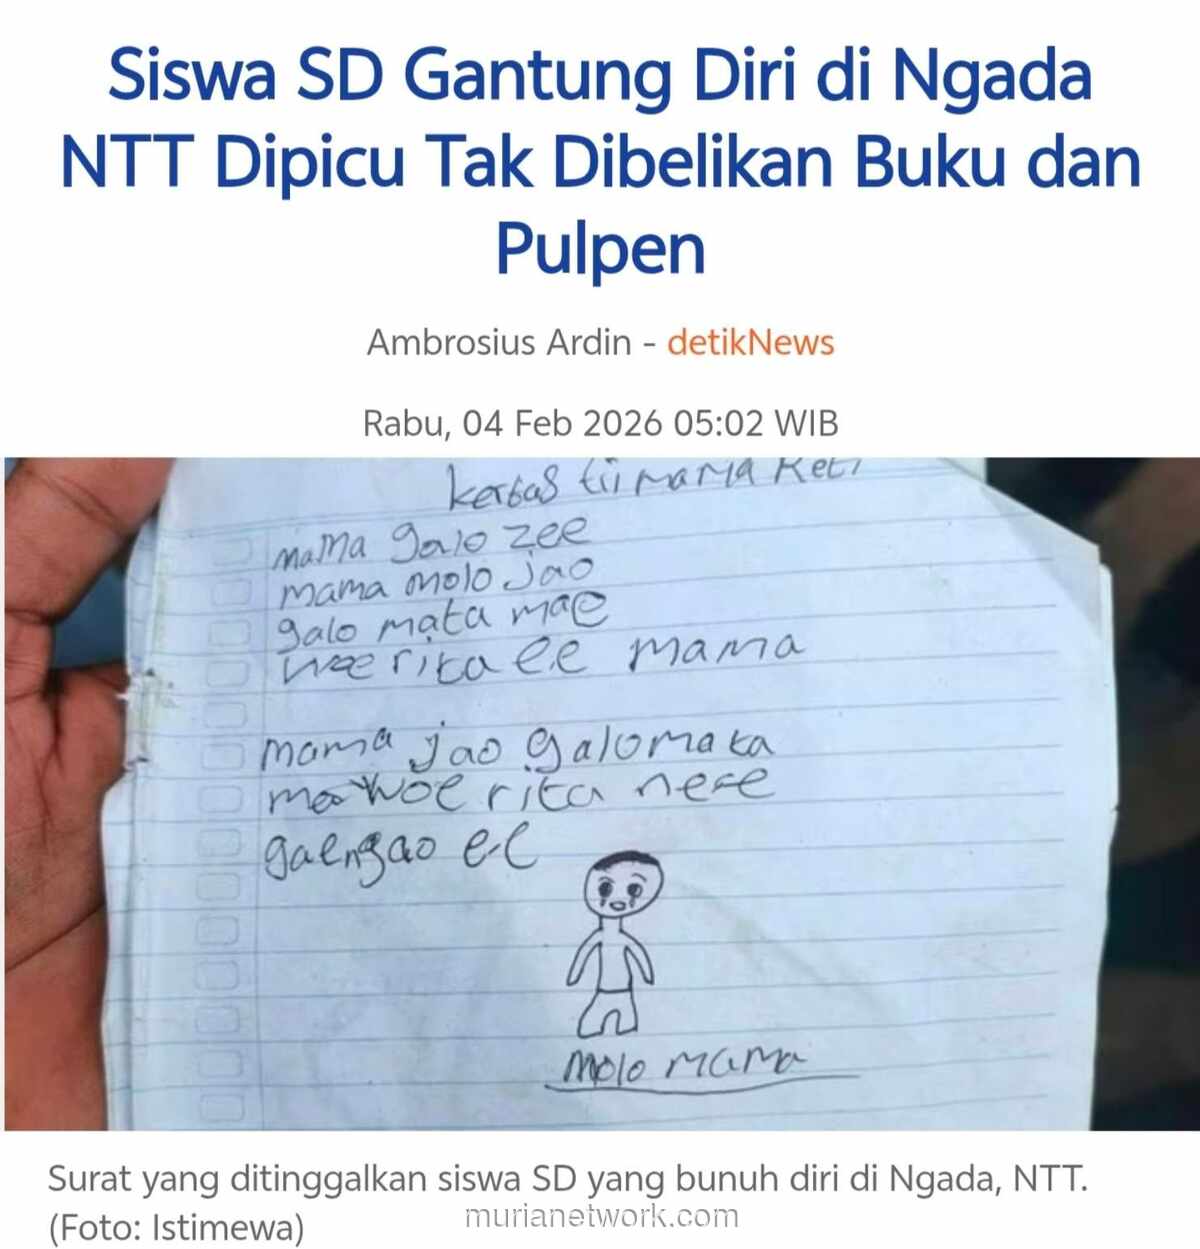 Siswa SD Gantung Diri di Ngada
NTT Dipicu Tak Dibelikan Buku dan
Pulpen
Ambrosius Ardin - detikNews
Rabu, 04 Feb 2026 05:02 WIB
kertas tii mama Reti
mama galo zee
mama molo jao
galo mata mae
woe rita ee mama
mama jao galo mata
mae woe rita nee
gae ngao ee
molo mama
Surat yang ditinggalkan siswa SD yang bunuh diri di Ngada, NTT.
(Foto: Istimewa)
murianetwork.com